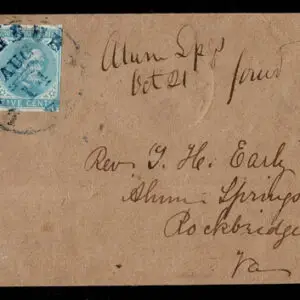 AUG
FIVE CENT
Alum Spgs
Oct 21
forwd
Rev J. H. Early
Alum Springs
Rockbridge
Va